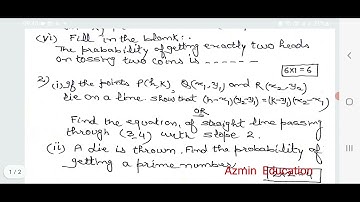 (vi) Fill in the blank:.
The probability of getting exactly two heads
on tossing two coins is ------
6x1=6
2) (i) If the points P(h,K), Q(x₁,y₁) and R(x₂,y₂)
lie on a line. show that (h-x₁)(y₂-y₁)=(k-y₁)(x₂-x₁)
OR
Find the equation, of straight line passing
through (3,4) with slope 2.
(ii) A die is thrown. Find the probability of
getting a prime number.
Azmin Education
1/2